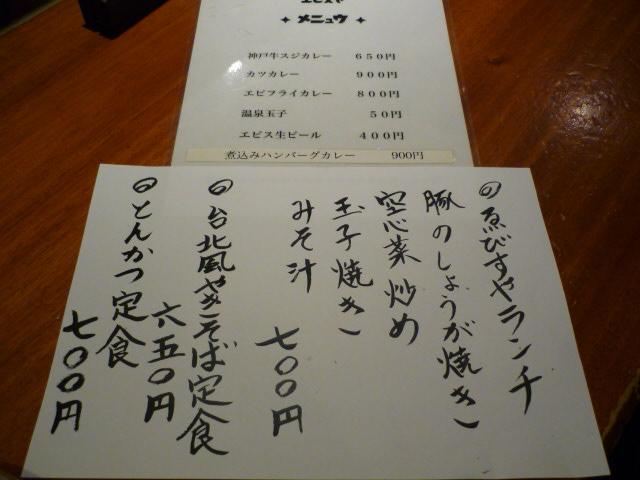 エビスヤ
✦ メニュウ ✦
神戸牛スジカレー 650円
カツカレー 900円
エビフライカレー 800円
温泉玉子 50円
エビス生ビール 400円
煮込みハンバーグカレー 900円
◎ゑびすやランチ
豚のしょうが焼き
空心菜炒め
玉子焼き
みそ汁
七〇〇円
◎台北風やきそば定食
六五〇円
◎とんかつ定食
七〇〇円